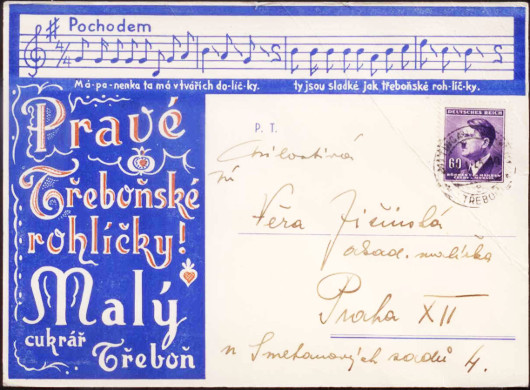 Pochodem
Má-pa-nenka ta má v tvářích do-líč-ky. ty jsou sladké jak třeboňské roh-líč-ky.
Pravé
Třeboňské
rohlíčky!
Malý
cukrář
Třeboň
P. T.
Milostivá
Věra Jičínská
Praha XII
Smetanových sadů 4.
DEUTSCHES REICH
60
BÖHMEN u. MÄHREN
ČECHY a MORAVA